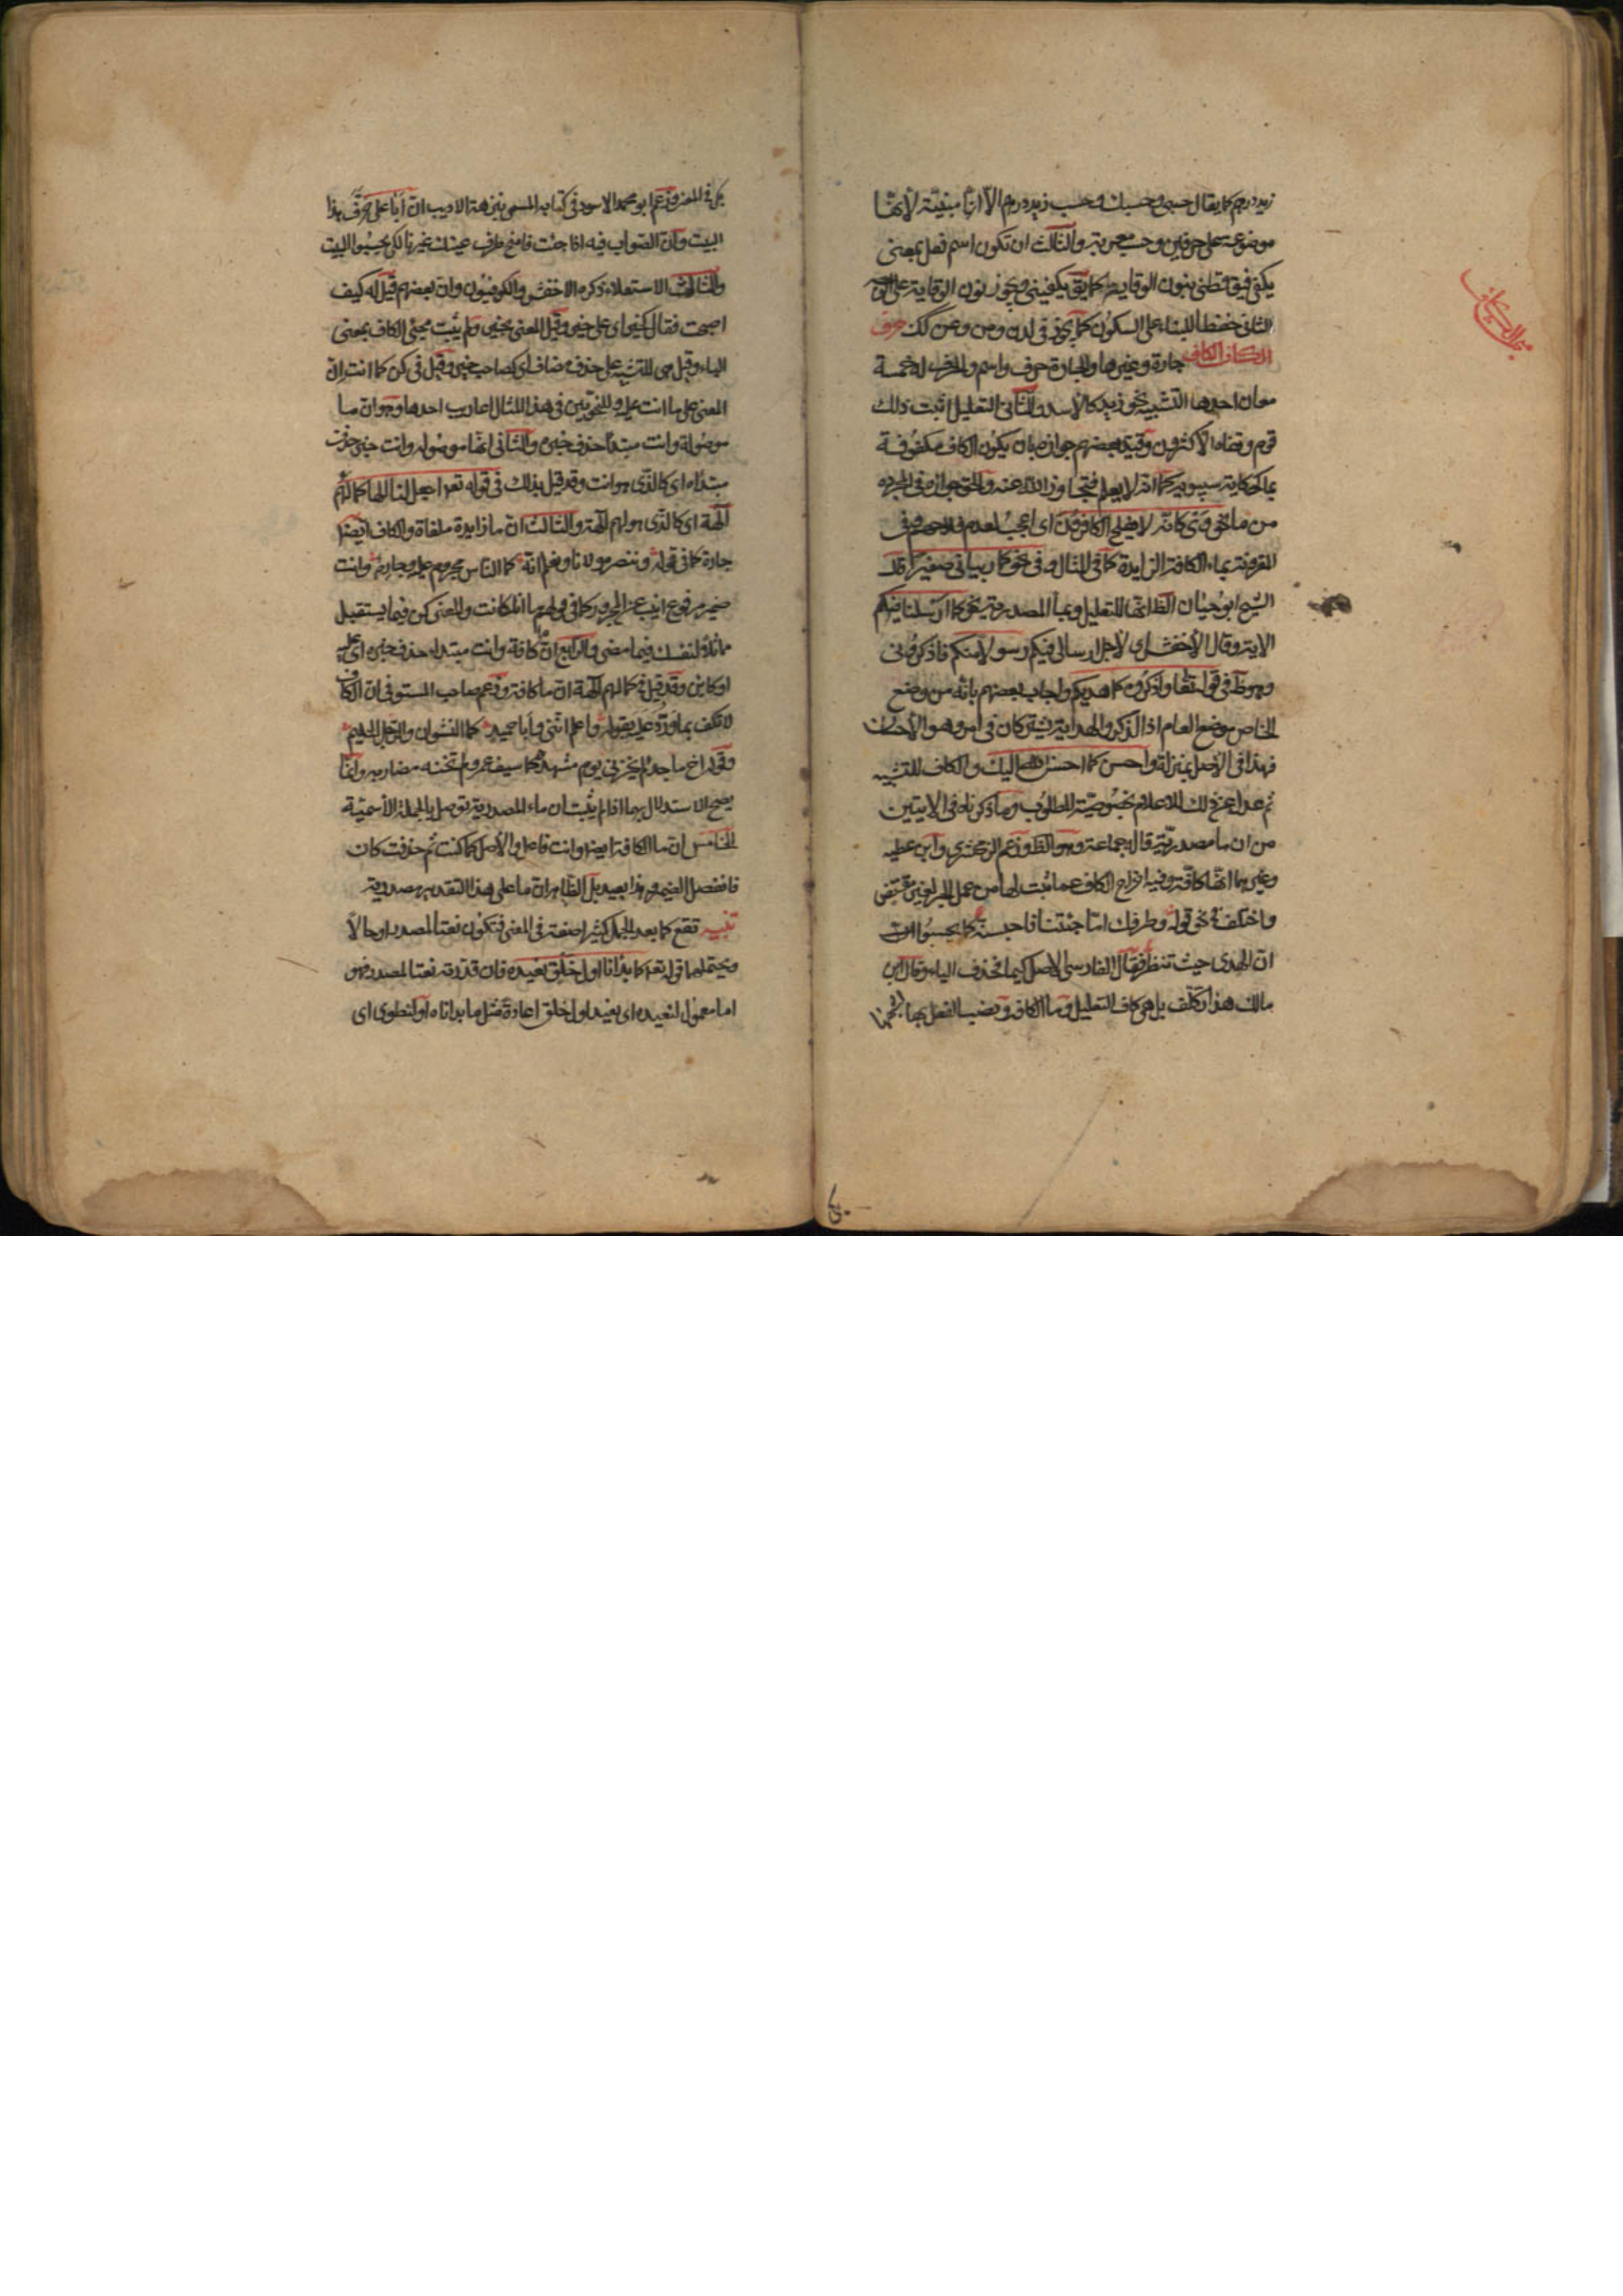 زيد درهم كما يقال حسبي وحسبك وحسب زيد درهم الا انها مبنية لأنها
موضوعة على حرفين وحسب معربة والثالث ان تكون اسم فعل بمعنى
يكفي فيق قطني بنون الوقاية كما يق يكفيني ويجوز نون الوقاية على الوجه
الثاني حفظا للبناء على السكون كما يجوز في لدن ومن وعن كك حرف
الكاف الكاف جارة وغيرها والجارة حرف واسم والحرف له خمسة
معان احدها التشبيه نحو زيد كالأسد والثاني التعليل اثبت ذلك
قوم ونفاه الأكثرون وقيد بعضهم جوازه بان يكون الكاف مكفوفة
بما كحكاية سيبويه كما انه لا يعلم فتجاوز الله عنه والحق جوازه في المجردة
من ما نحو وي كانه لا يفلح الكافرون اى اعجب لعدم فلاحهم وفي
المقرونة بماء الكافة الزايدة كما في المثال وفي نحو كما ربياني صغيرا قال
الشيخ ابو حيان الظ انها للتعليل وبما المصدرية نحو كما ارسلنا فيكم
الاية وقال الأخفش اى لأجل ارسالي فيكم رسولا منكم فاذكروني
وهو ظ في قوله تعا واذكروه كما هديكم واجاب بعضهم بانه من وضع
الخاص موضع العام اذ الذكر والهداية يشتركان في امر وهو الأحسان
فهذا في الأصل بمنزلة واحسن كما احسن الله اليك والكاف للتشبيه
ثم عدل عن ذلك للاعلام بخصوصية المطلوب وما ذكرناه في الايتين
من ان ما مصدرية قاله جماعة وهو الظ وزعم الزمخشري وابن عطية
وغيرهما انها كافة وفيه اخراج الكاف عما ثبت لها من عمل الجر لغير مقتض
واختلف في نحو قوله وطرفك اما جئتنا فاحبسنه كما يحسبوا ان
ان الهوى حيث تنظر فقال الفارسي الاصل كيما فحذف الياء وقال ابن
مالك هذا تكلف بل هي كاف التعليل وما الكافة ونصب الفعل بها لشبهها
بكى في المعنى وزعم ابو محمد الاسود في كتابه المسمى نزهة الاديب ان أبا على حرف هذا
البيت وان الصواب فيه اذا جئت فامنح طرف عينك غيرنا لكى يحسبوا البيت
والثالث الاستعلاء ذكره الاخفش والكوفيون وان بعضهم قيل له كيف
اصبحت فقال كخير اى على خير وقيل المعنى بخير ولم يثبت مجئ الكاف بمعنى
الباء وقيل هى للتشبيه على حذف مضاف اى كصاحب خير وقيل في كن كما انت ان
المعنى على ما انت عليه وللنحويين في هذا المثال اعاريب احدها وهو ان ما
موصولة وانت مبتدأ حذف خبره والثاني انها موصولة وانت خبر حذف
مبتداه اى كالذى هو انت وقد قيل بذلك في قوله تعا اجعل لنا الها كما لهم
آلهة اى كالذى هو لهم آلهة والثالث ان ما زايدة ملغاة والكاف ايضا
جارة كما في قوله وننصر مولانا ونعلم انه كما الناس مجروم عليه وجارم وانت
ضمير مرفوع انيب عن المجرور كما في قولهم ما انا كانت والمعنى كن فيما يستقبل
مماثلا لنفسك فيما مضى والرابع ان ما كافة وانت مبتداء حذف خبره اى عليه
او كائن وقد قيل في كما لهم آلهة ان ما كافة وزعم صاحب المستوفى ان الكاف
لا تكف بما ورد عليه بقوله واعلم انني وأبا حميد كما النشوان والرجل الحليم
وقوله اخ ماجد لم يخزني يوم مشهد كما سيف عمرو لم تخنه مضاربه وانما
يصح الاستدلال بهما اذا لم يثبت ان ماء المصدرية توصل بالجملة الأسمية
الخامس ان ما الكافة ايضا وانت فاعل والأصل كما كنت ثم حذفت كان
فانفصل الضمير وهذا بعيد بل الظاهر ان ما على هذا التقدير مصدرية
تنبيه تقع كما بعد الجمل كثيرا صفة في المعنى فتكون نعتا لمصدر او حالا
ويحتملهما قوله تعا كما بدأنا اول خلق نعيده فان قدرته نعتا لمصدر فهو
اما معمول لنعيده اى نعيد اول خلق اعادة مثل ما بدأناه او لنطوى اى